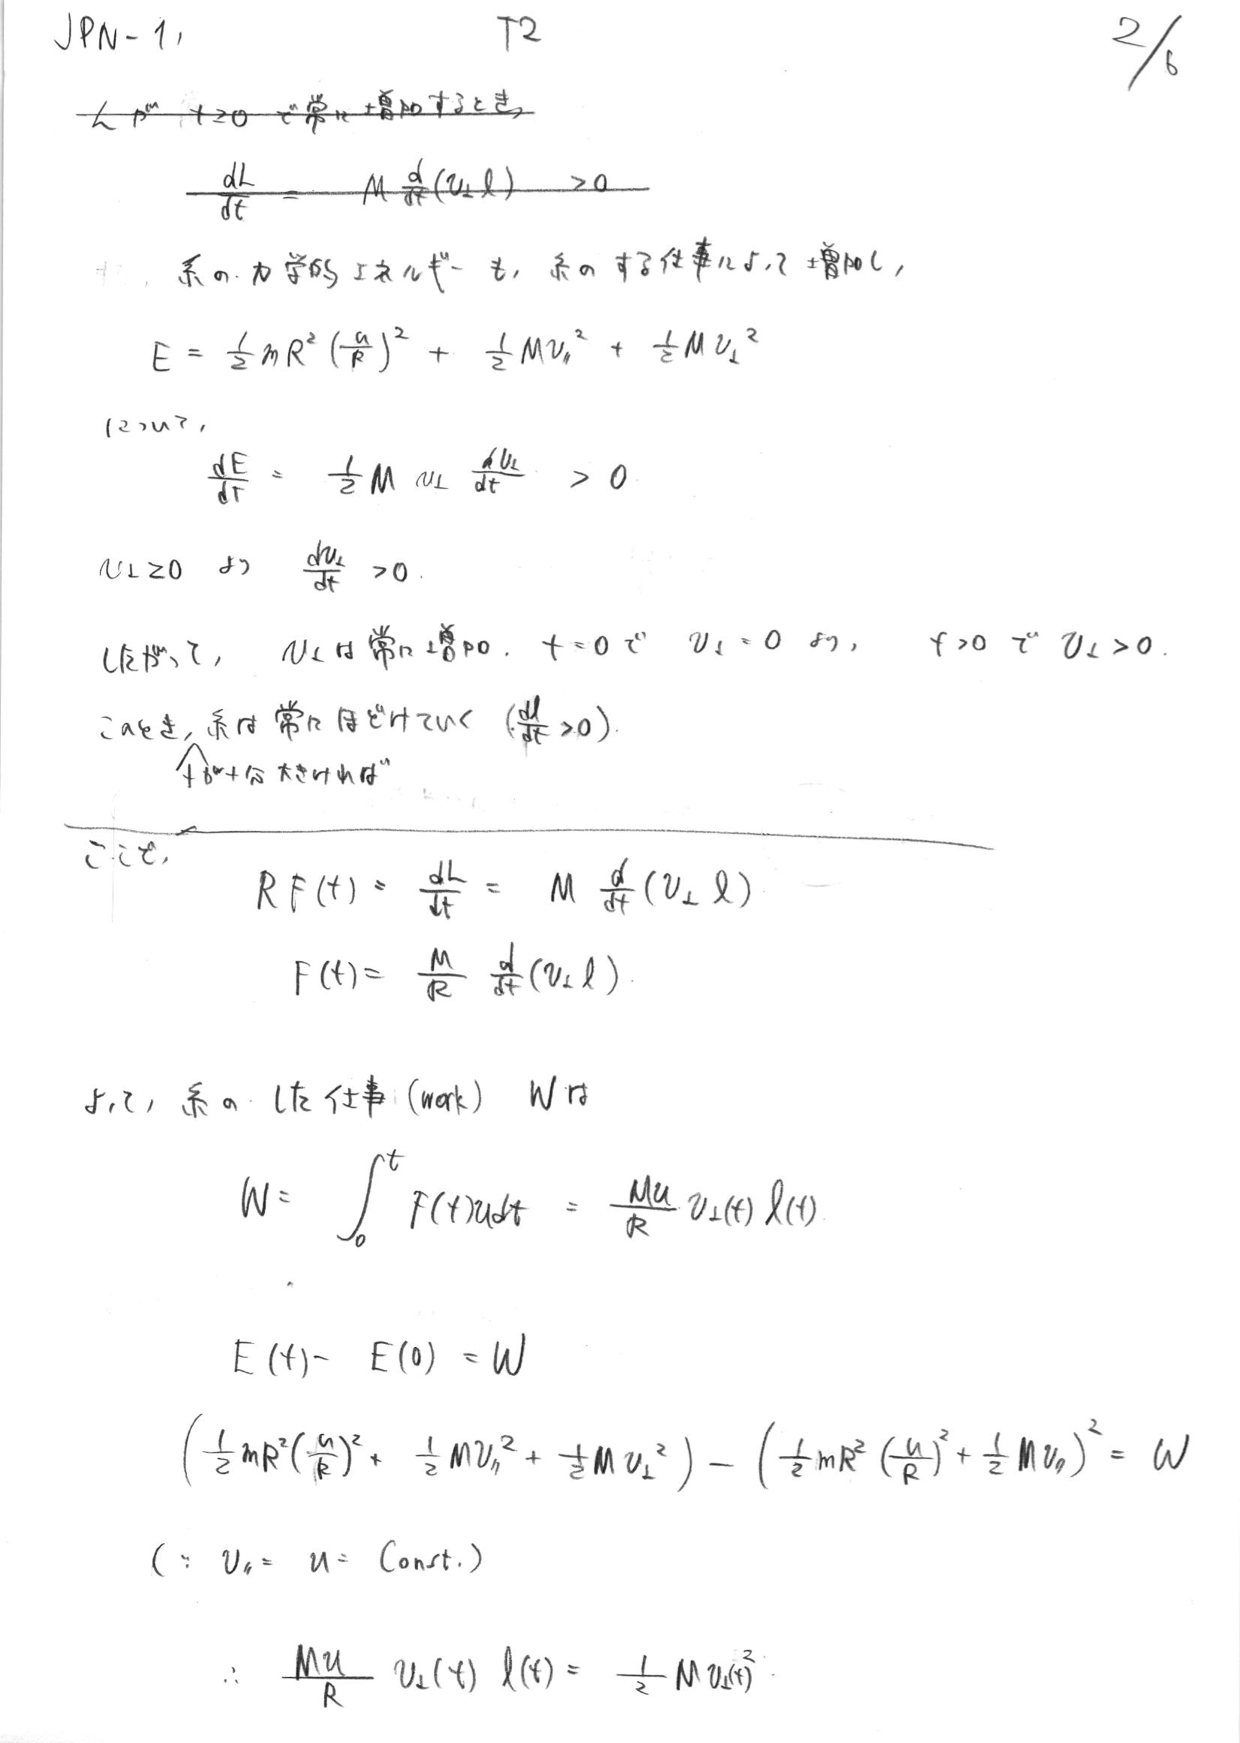 JPN-1, T2 2/6
Lが t≥0 で常に増加するとき,
dL/dt = M d/dt(v⊥ l) > 0
系の力学的エネルギーも, 系のする仕事によって増加し,
E = 1/2 mR²(u/R)² + 1/2 Mv∥² + 1/2 Mv⊥²
について,
dE/dt = 1/2 M v⊥ dv⊥/dt > 0
v⊥≥0 より dv⊥/dt >0.
したがって, v⊥は常に増加. t=0で v⊥=0 より, t>0 で v⊥>0.
このとき, 糸は常にほどけていく (dl/dt >0).
tが十分大きければ
ここで,
RF(t) = dL/dt = M d/dt(v⊥ l)
F(t) = M/R d/dt(v⊥ l).
よって, 系のした仕事(work) Wは
W = ∫₀ᵗ F(t)udt = Mu/R v⊥(t) l(t)
E(t) - E(0) = W
(1/2 mR²(u/R)² + 1/2 Mv∥² + 1/2 Mv⊥²) - (1/2 mR²(u/R)² + 1/2 Mv∥)² = W
(∵ v∥ = u = Const.)
∴ Mu/R v⊥(t) l(t) = 1/2 Mv⊥(t)².